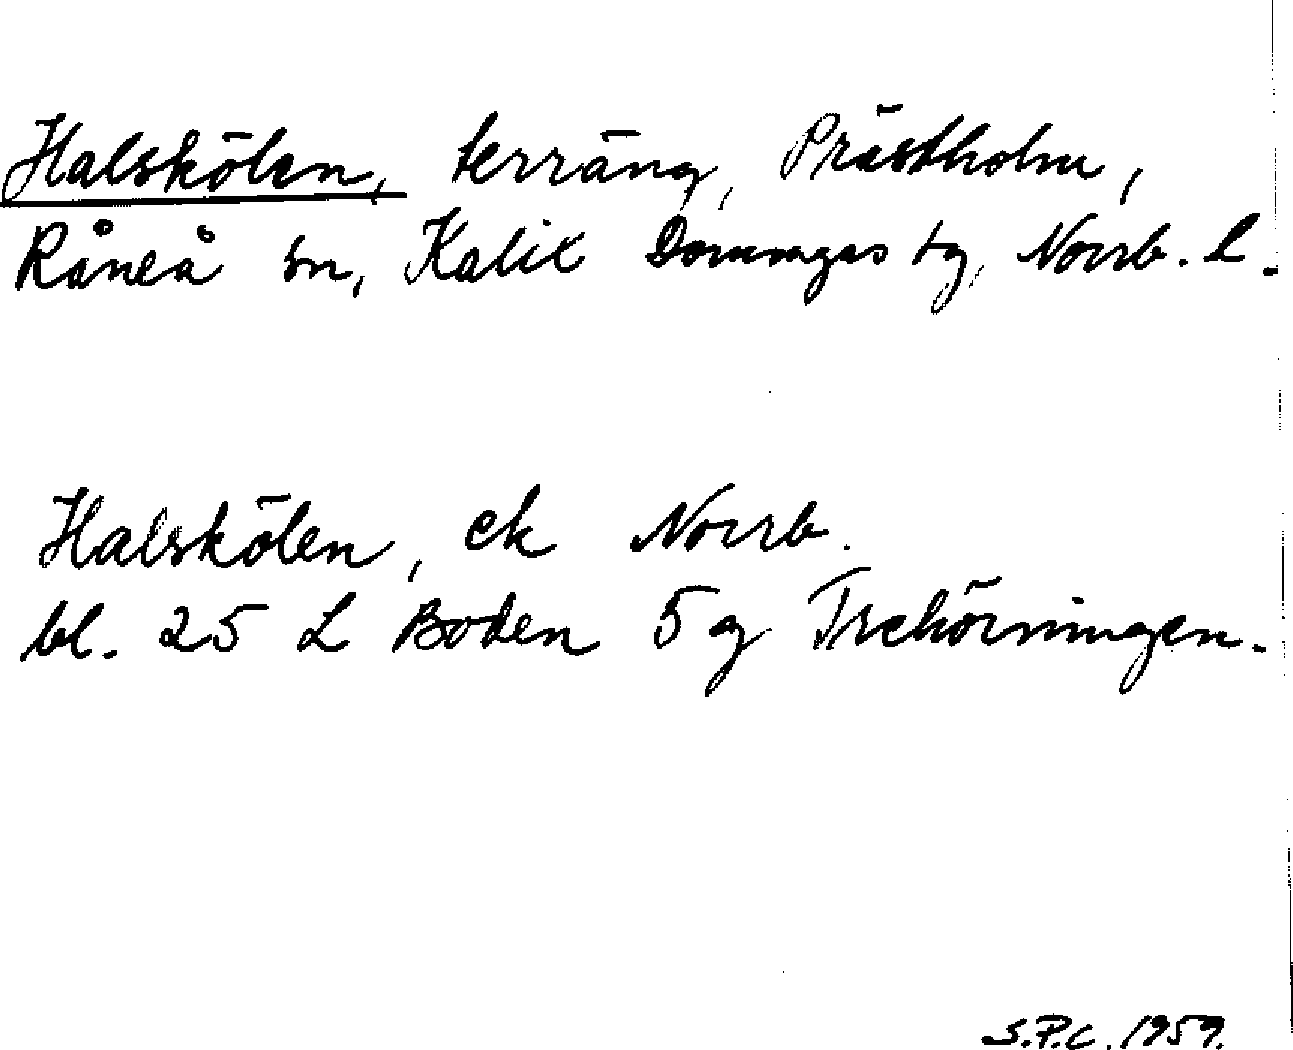 Halskölen, terräng, Prästholm,
Råneå sn, Kalix Domsagas tg, Norrb. L.
Halskölen, ek Norrb.
bl. 25 L Boden 5 g Trehörningen.
S.P.C. 1959.